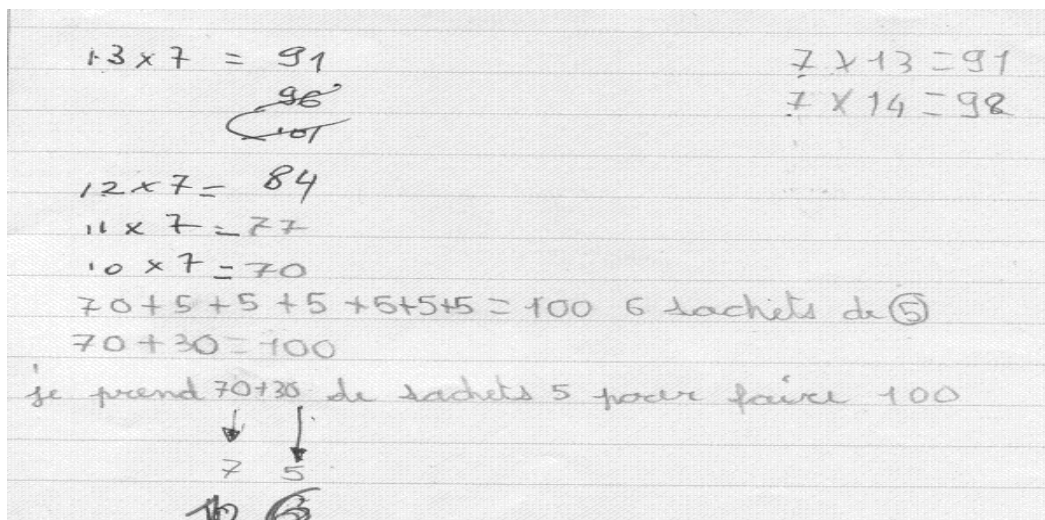 13 x 7 = 91
96
101
7 x 13 = 91
7 x 14 = 98
12 x 7 = 84
11 x 7 = 77
10 x 7 = 70
70+5+5+5+5+5+5=100 6 sachets de 5
70+30=100
je prend 70+30 de sachets 5 pour faire 100
7 5
10 6